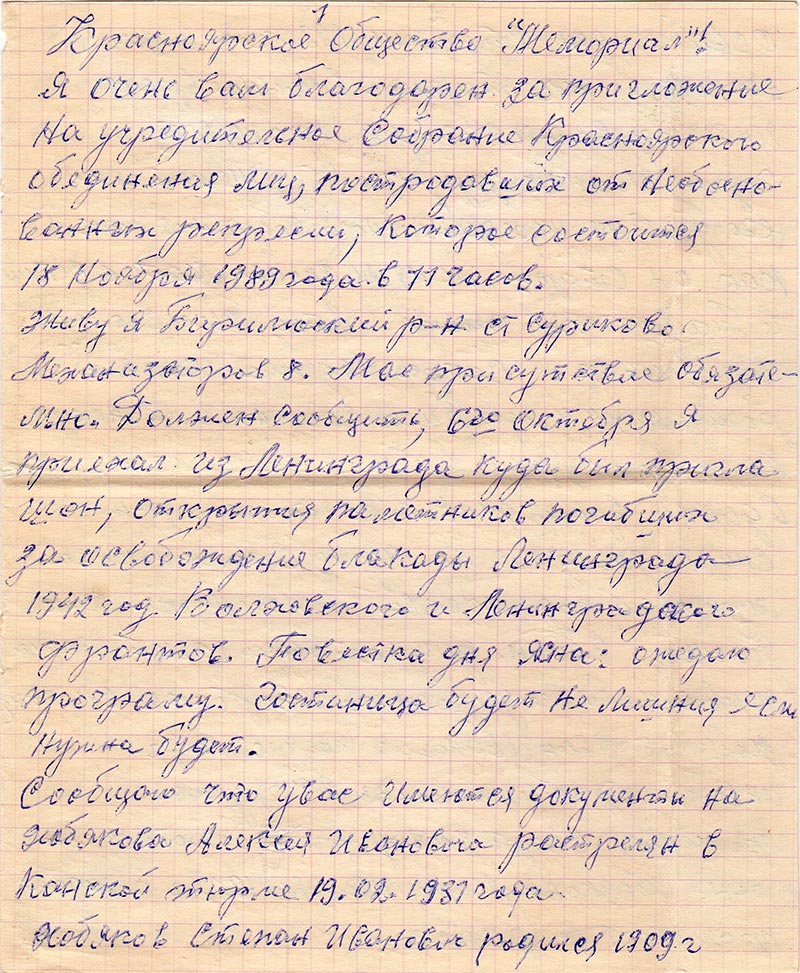 1
Красноярское Общество "Мемориал"!
Я очень вам благодарен за приглашение
на учредительное Собрание Красноярского
обединения лиц, постродавших от необосно-
ванных репресси, которое состоится
18 Ноября 1989 года в 11 часов.
Живу я Бирилюский р-н ст Суриково
Механизаторов 8. Мое присутствие обязате-
льно. Должен сообщить, 6го октября я
приехал из Ленинграда куда был пригла
шон, открытия паметников погибших
за освобождение блакады Ленинграда
1942 год Волховского и Ленинградского
фронтов. Повестка дня ясна: ожедаю
програму. Гостиница будет не лишния если
нужна будет.
Сообщаю что увас имеются документы на
Алексея Ивановича растрелян в
Канской тюрме 19.02.1931 года
Степан Иванович родился 1909 г